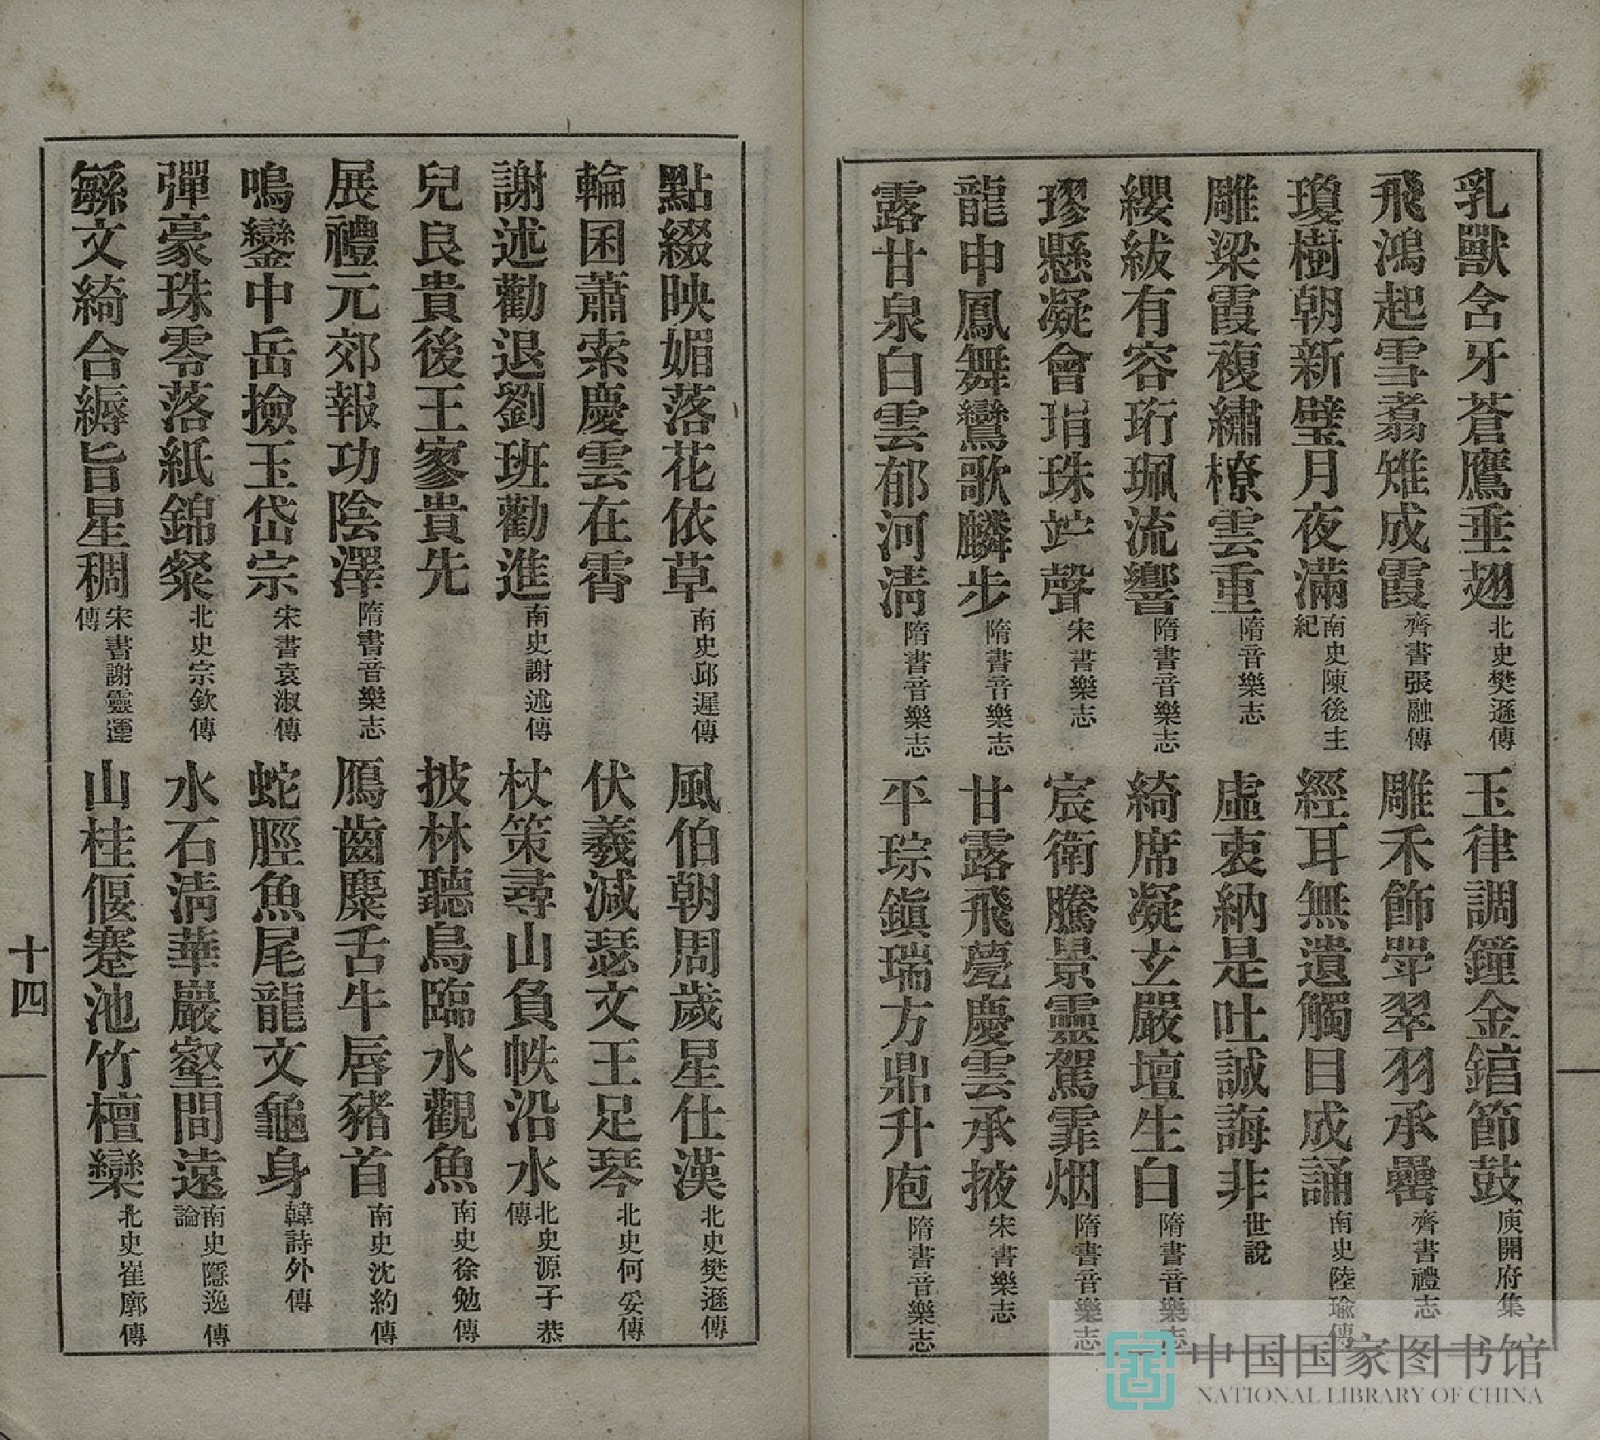 乳獸含牙蒼鷹垂翅 北史樊遜傳 玉律調鐘金錞節鼓 庾開府集
飛鴻起雪翥雉成霞 齊書張融傳 雕禾飾斝翠羽承罍 齊書禮志
瓊樹朝新璧月夜滿 南史陳後主紀 經耳無遺觸目成誦 南史陸瑜傳
雕梁霞複繡橑雲重 隋音樂志 虛衷納是吐誠誨非 世說
纓紱有容珩珮流響 隋書音樂志 綺席凝玄嚴壇生白 隋書音樂志
璆懸凝會珇珠竚聲 宋書樂志 宸衛騰景靈駕霏烟 隋書音樂志
龍申鳳舞鸞歌麟步 隋書音樂志 甘露飛甍慶雲承掖 宋書樂志
露甘泉白雲郁河清 隋書音樂志 平琮鎮瑞方鼎升庖 隋書音樂志
點綴映媚落花依草 南史邱遲傳 風伯朝周歲星仕漢 北史樊遜傳
輪囷蕭索慶雲在霄 伏羲減瑟文王足琴 北史何妥傳
謝述勸退劉班勸進 南史謝述傳 杖策尋山負帙沿水 北史源子恭傳
兒良貴後王寥貴先 披林聽鳥臨水觀魚 南史徐勉傳
展禮元郊報功陰澤 隋書音樂志 鴈齒麋舌牛唇豬首 南史沈約傳
鳴鑾中岳撿玉岱宗 宋書袁淑傳 蛇脛魚尾龍文龜身 韓詩外傳
彈豪珠零落紙錦粲 北史宗欽傳 水石清華巖壑間遠 南史隱逸傳論
緐文綺合縟旨星稠 宋書謝靈運傳 山桂偃蹇池竹檀欒 北史崔廓傳
十四
中国国家图书馆
NATIONAL LIBRARY OF CHINA